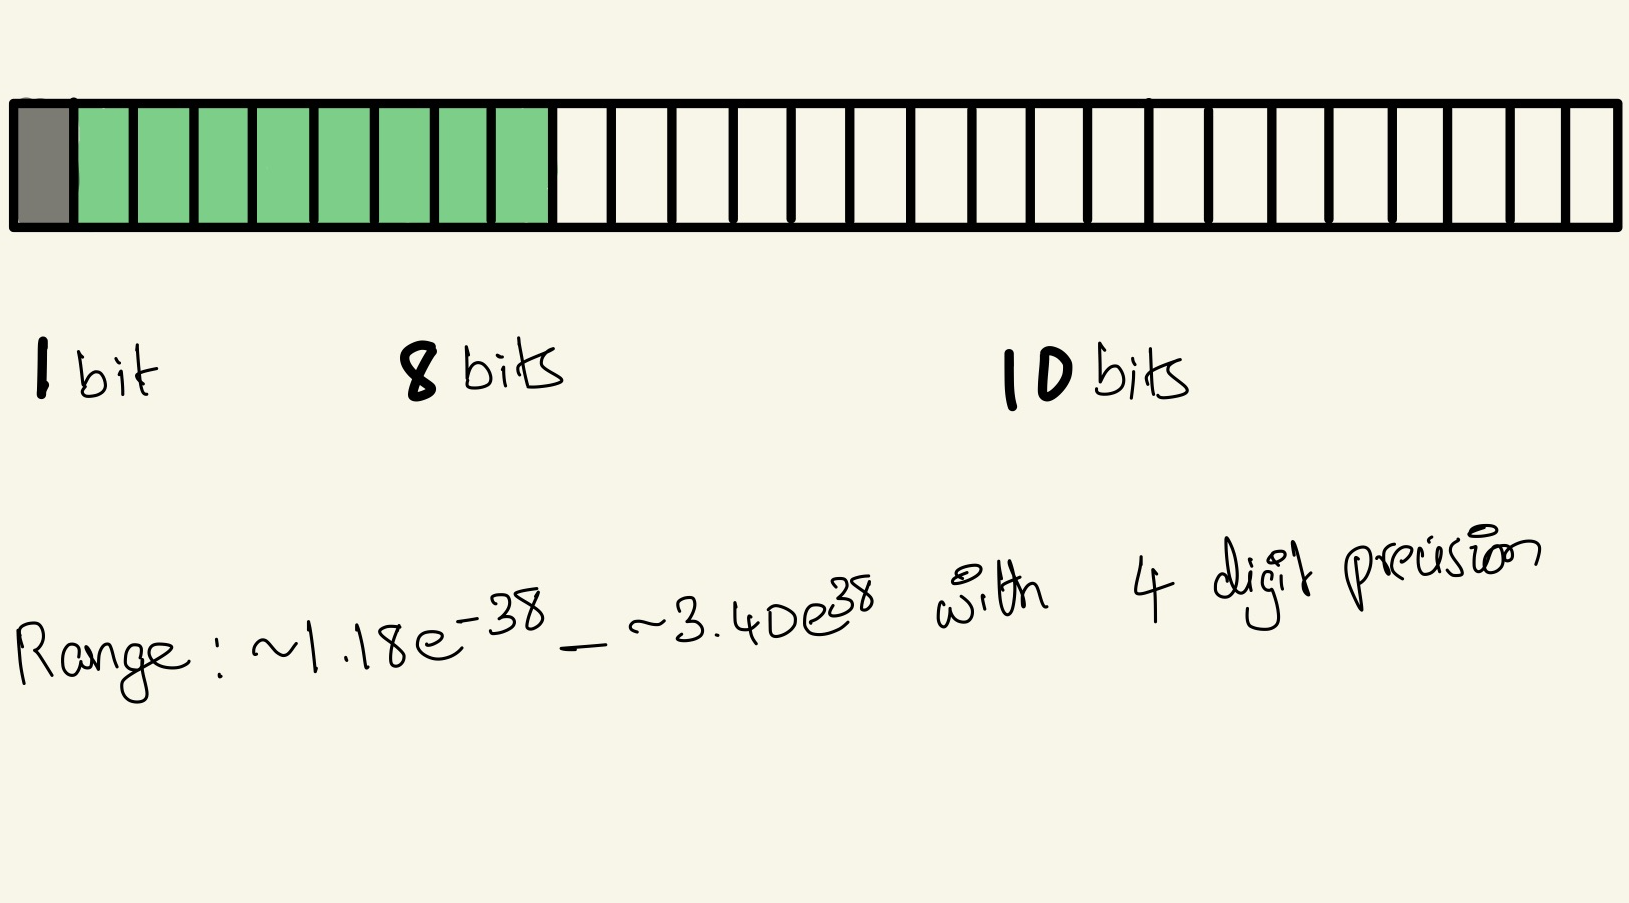 1 bit 8 bits 10 bits
Range: ~1.18e⁻³⁸ – ~3.40e³⁸ with 4 digit precision